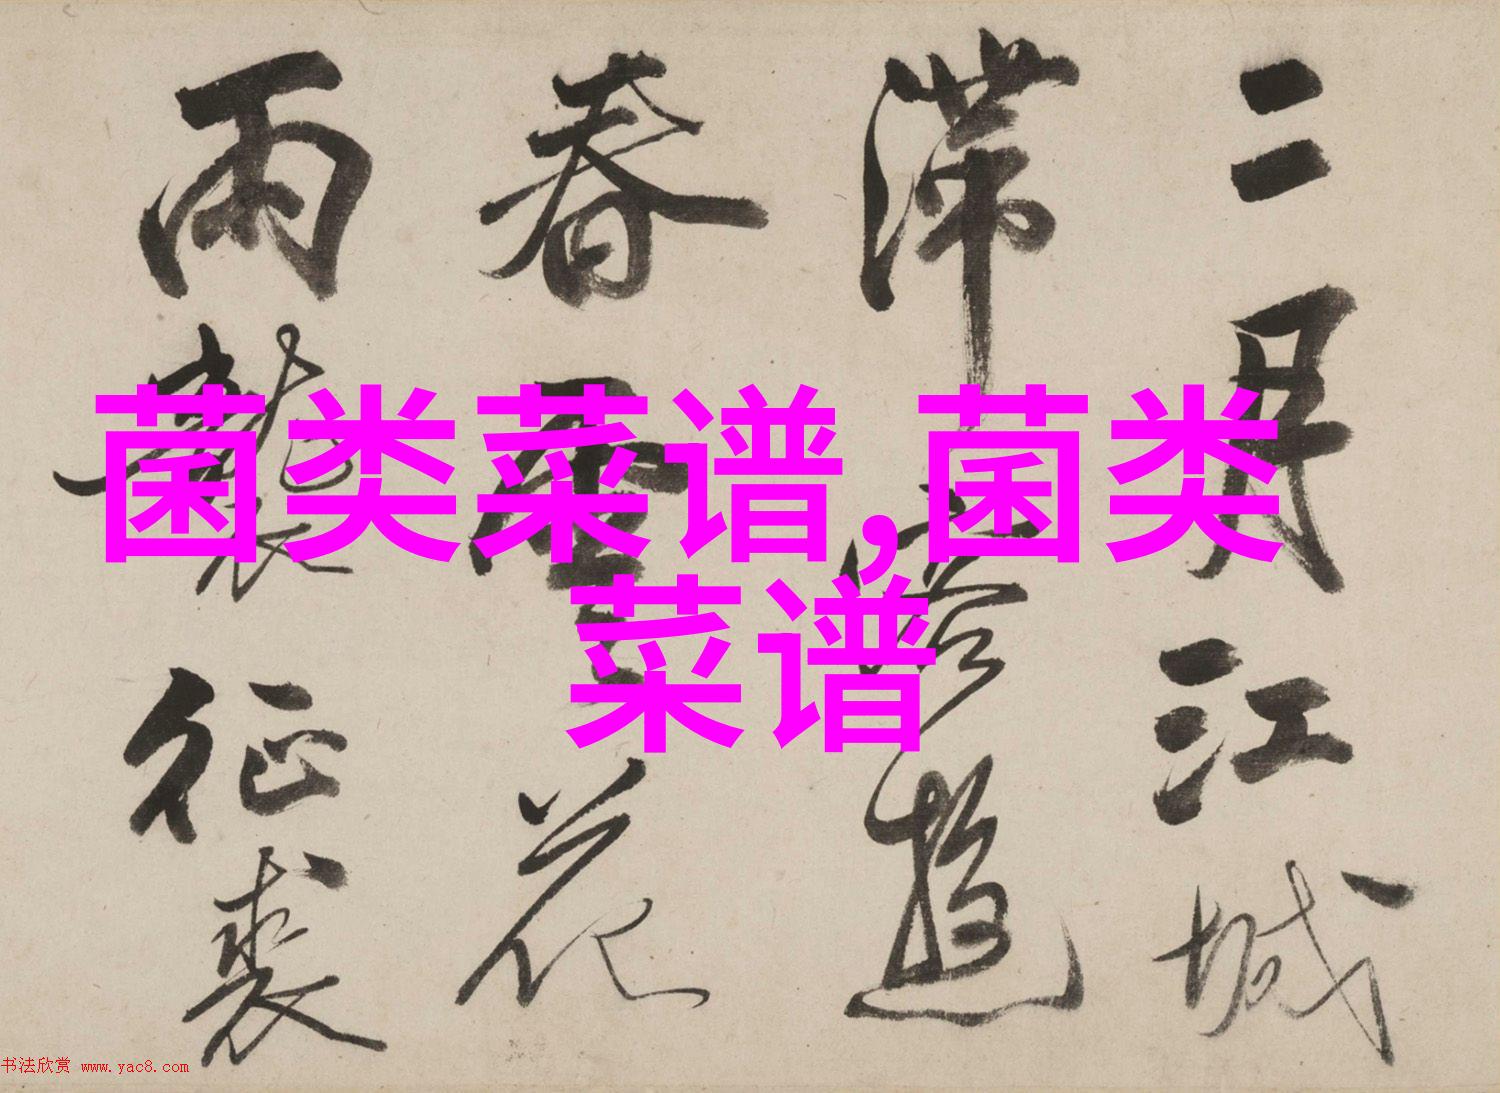 菌类菜谱,菌类
菜谱
二月江城
滞客遊
春雲花
雨襲征裘
书法欣赏 www.yac8.com